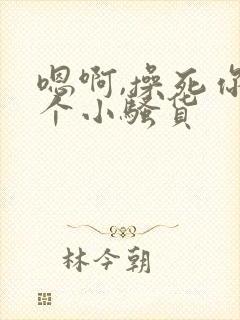 嗯啊,操死你
个小骚货
林今朝